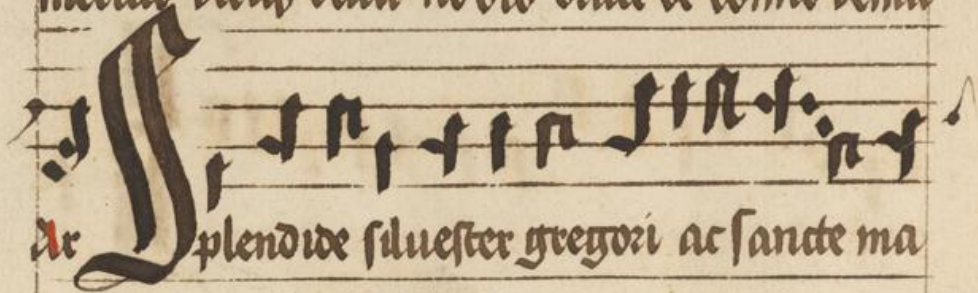 Ar Splendide silvester gregori ac sancte ma